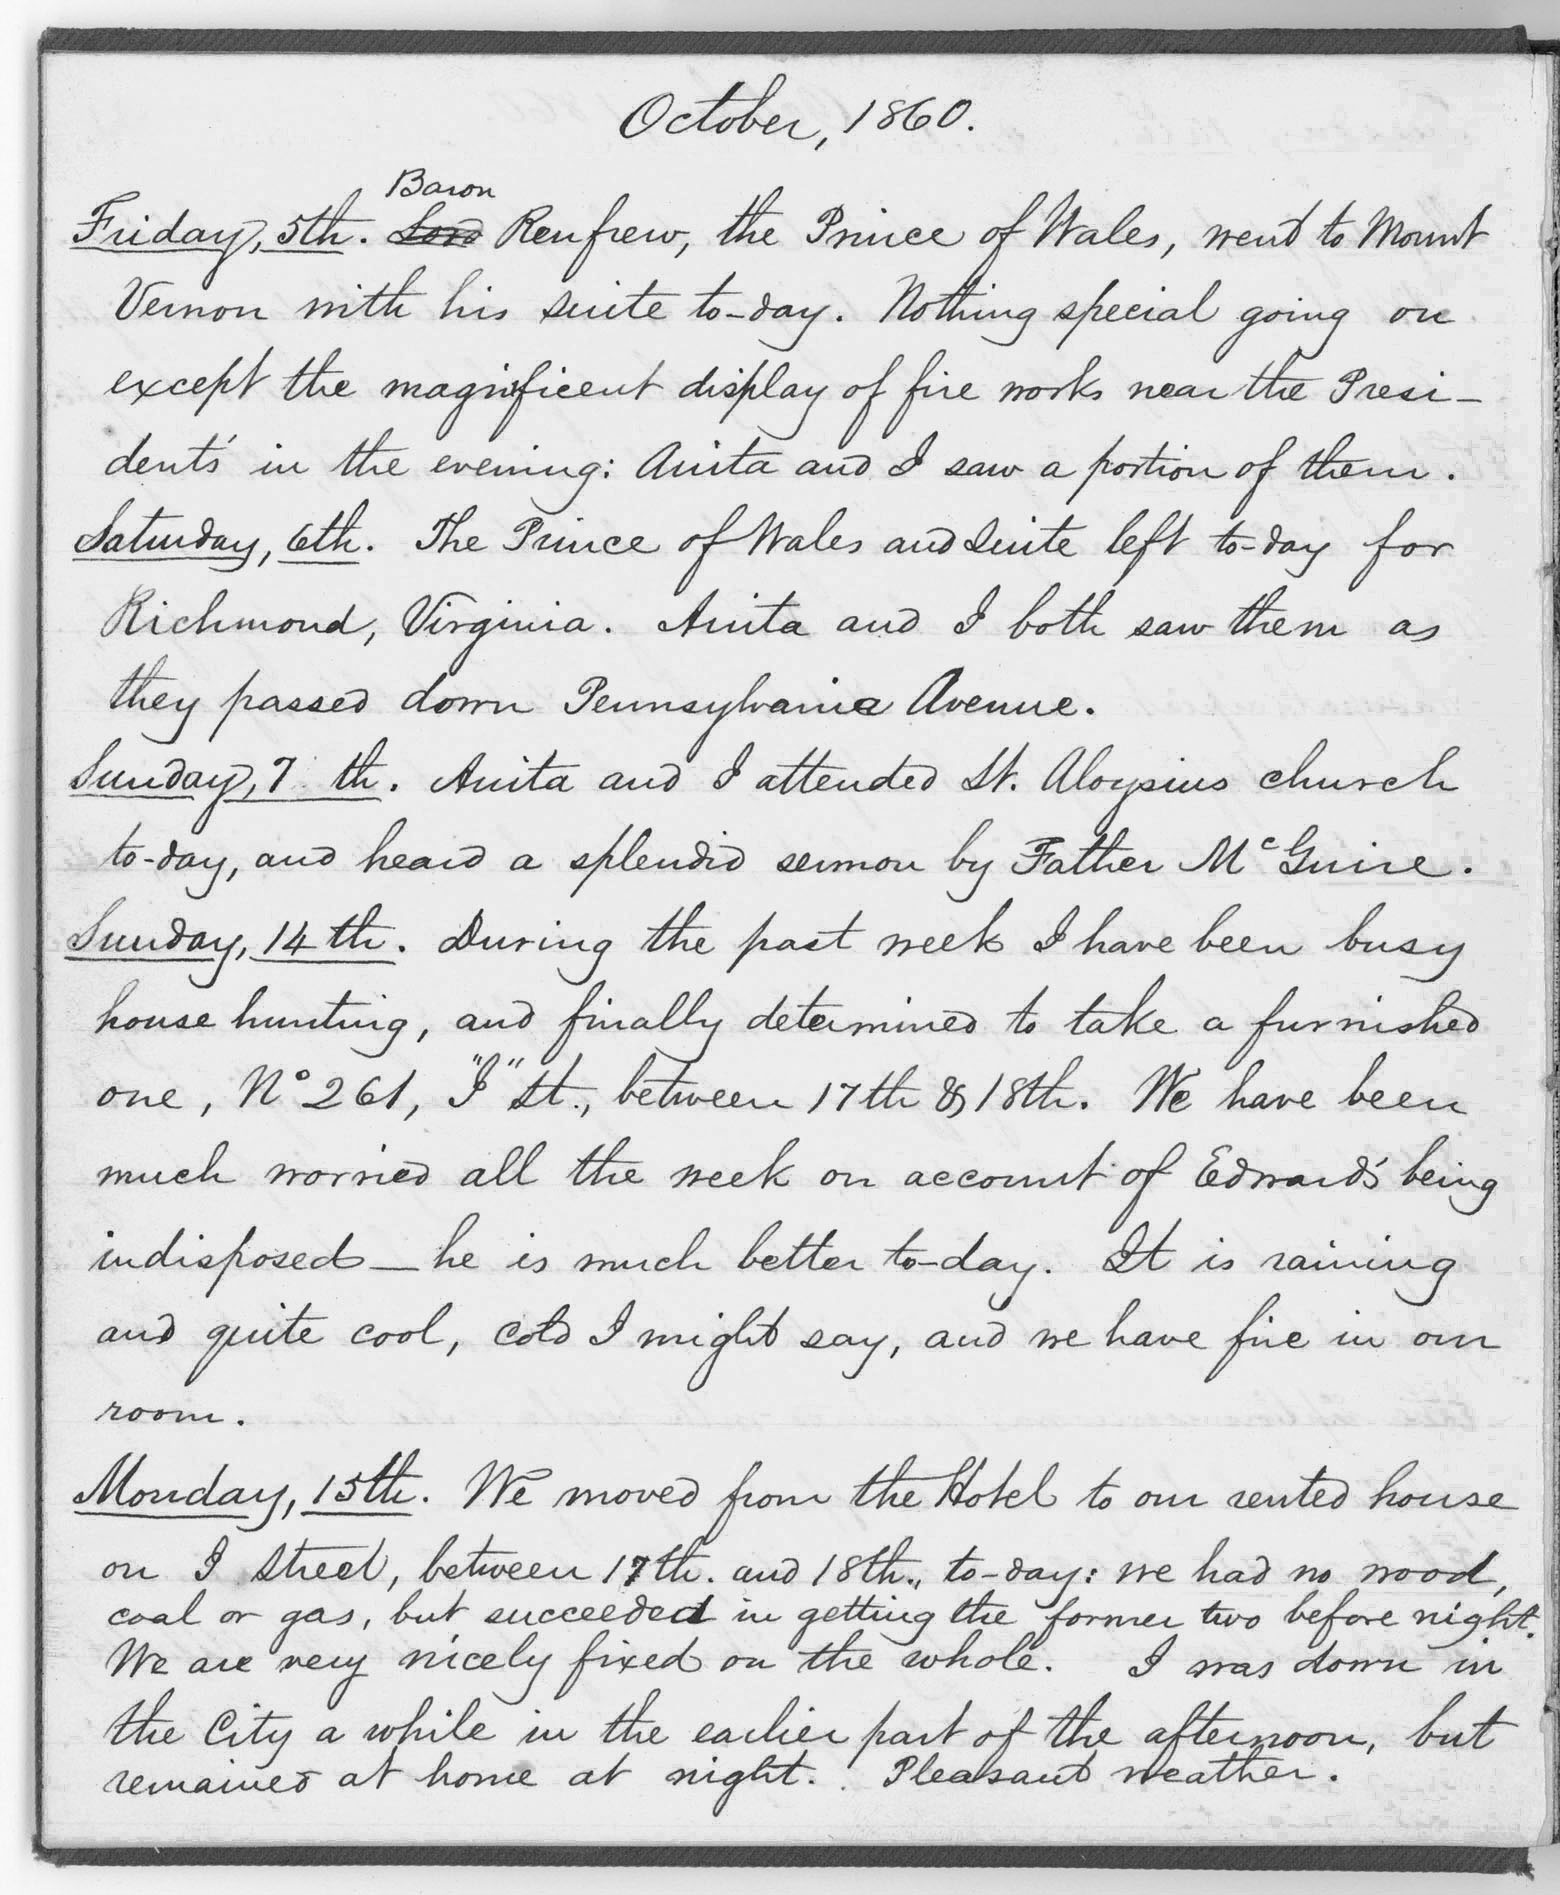 October, 1860.
Baron
Friday, 5th. Lord Renfrew, the Prince of Wales, went to Mount
Vernon with his suite to-day. Nothing special going on
except the magnificent display of fire works near the Presi-
dent's in the evening: Anita and I saw a portion of them.
Saturday, 6th. The Prince of Wales and suite left to-day for
Richmond, Virginia. Anita and I both saw them as
they passed down Pennsylvania Avenue.
Sunday, 7th. Anita and I attended St. Aloysius church
to-day, and heard a splendid sermon by Father McGuire.
Sunday, 14th. During the past week I have been busy
house hunting, and finally determined to take a furnished
one, No 261, "I" St., between 17th & 18th. We have been
much worried all the week on account of Edward's being
indisposed — he is much better to-day. It is raining
and quite cool, cold I might say, and we have fire in our
room.
Monday, 15th. We moved from the Hotel to our rented house
on I Street, between 17th. and 18th., to-day: we had no wood,
coal or gas, but succeeded in getting the former two before night.
We are very nicely fixed on the whole. I was down in
the City a while in the earlier part of the afternoon, but
remained at home at night. Pleasant weather.